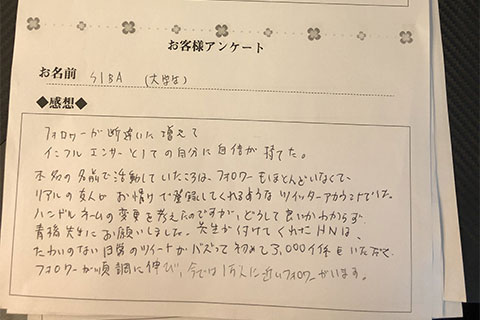 お客様アンケート
お名前 SIBA (大学生)
◆感想◆
フォロワーが断違いに増えて
インフルエンサーとしての自分に自信が持てた。
本名の名前で活動していたころは、フォロワーもほとんどいなくて、
リアルの友人がお情けで登録してくれるようなツイッターアカウントでした。
ハンドルネームの変更を考えたのですが、どうして良いかわからず、
青樹先生にお願いしました。先生が付けてくれたHNは、
たわいのない日常のツイートがバズって初めて3,000イイネをいただく、
フォロワーが順調に伸び、今では1万人に近いフォロワーがいます。